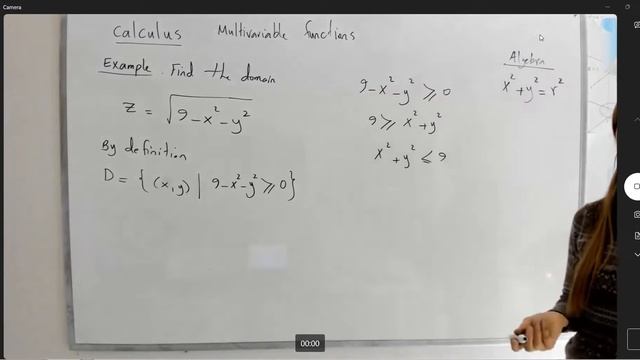 Camera
Calculus Multivariable functions
Example. Find the domain
z = √(9-x²-y²)
By definition
D = { (x,y) | 9-x²-y² ⩾ 0 }
9-x²-y² ⩾ 0
9 ⩾ x²+y²
x²+y² ≤ 9
Algebra
x²+y²=r²
00:00